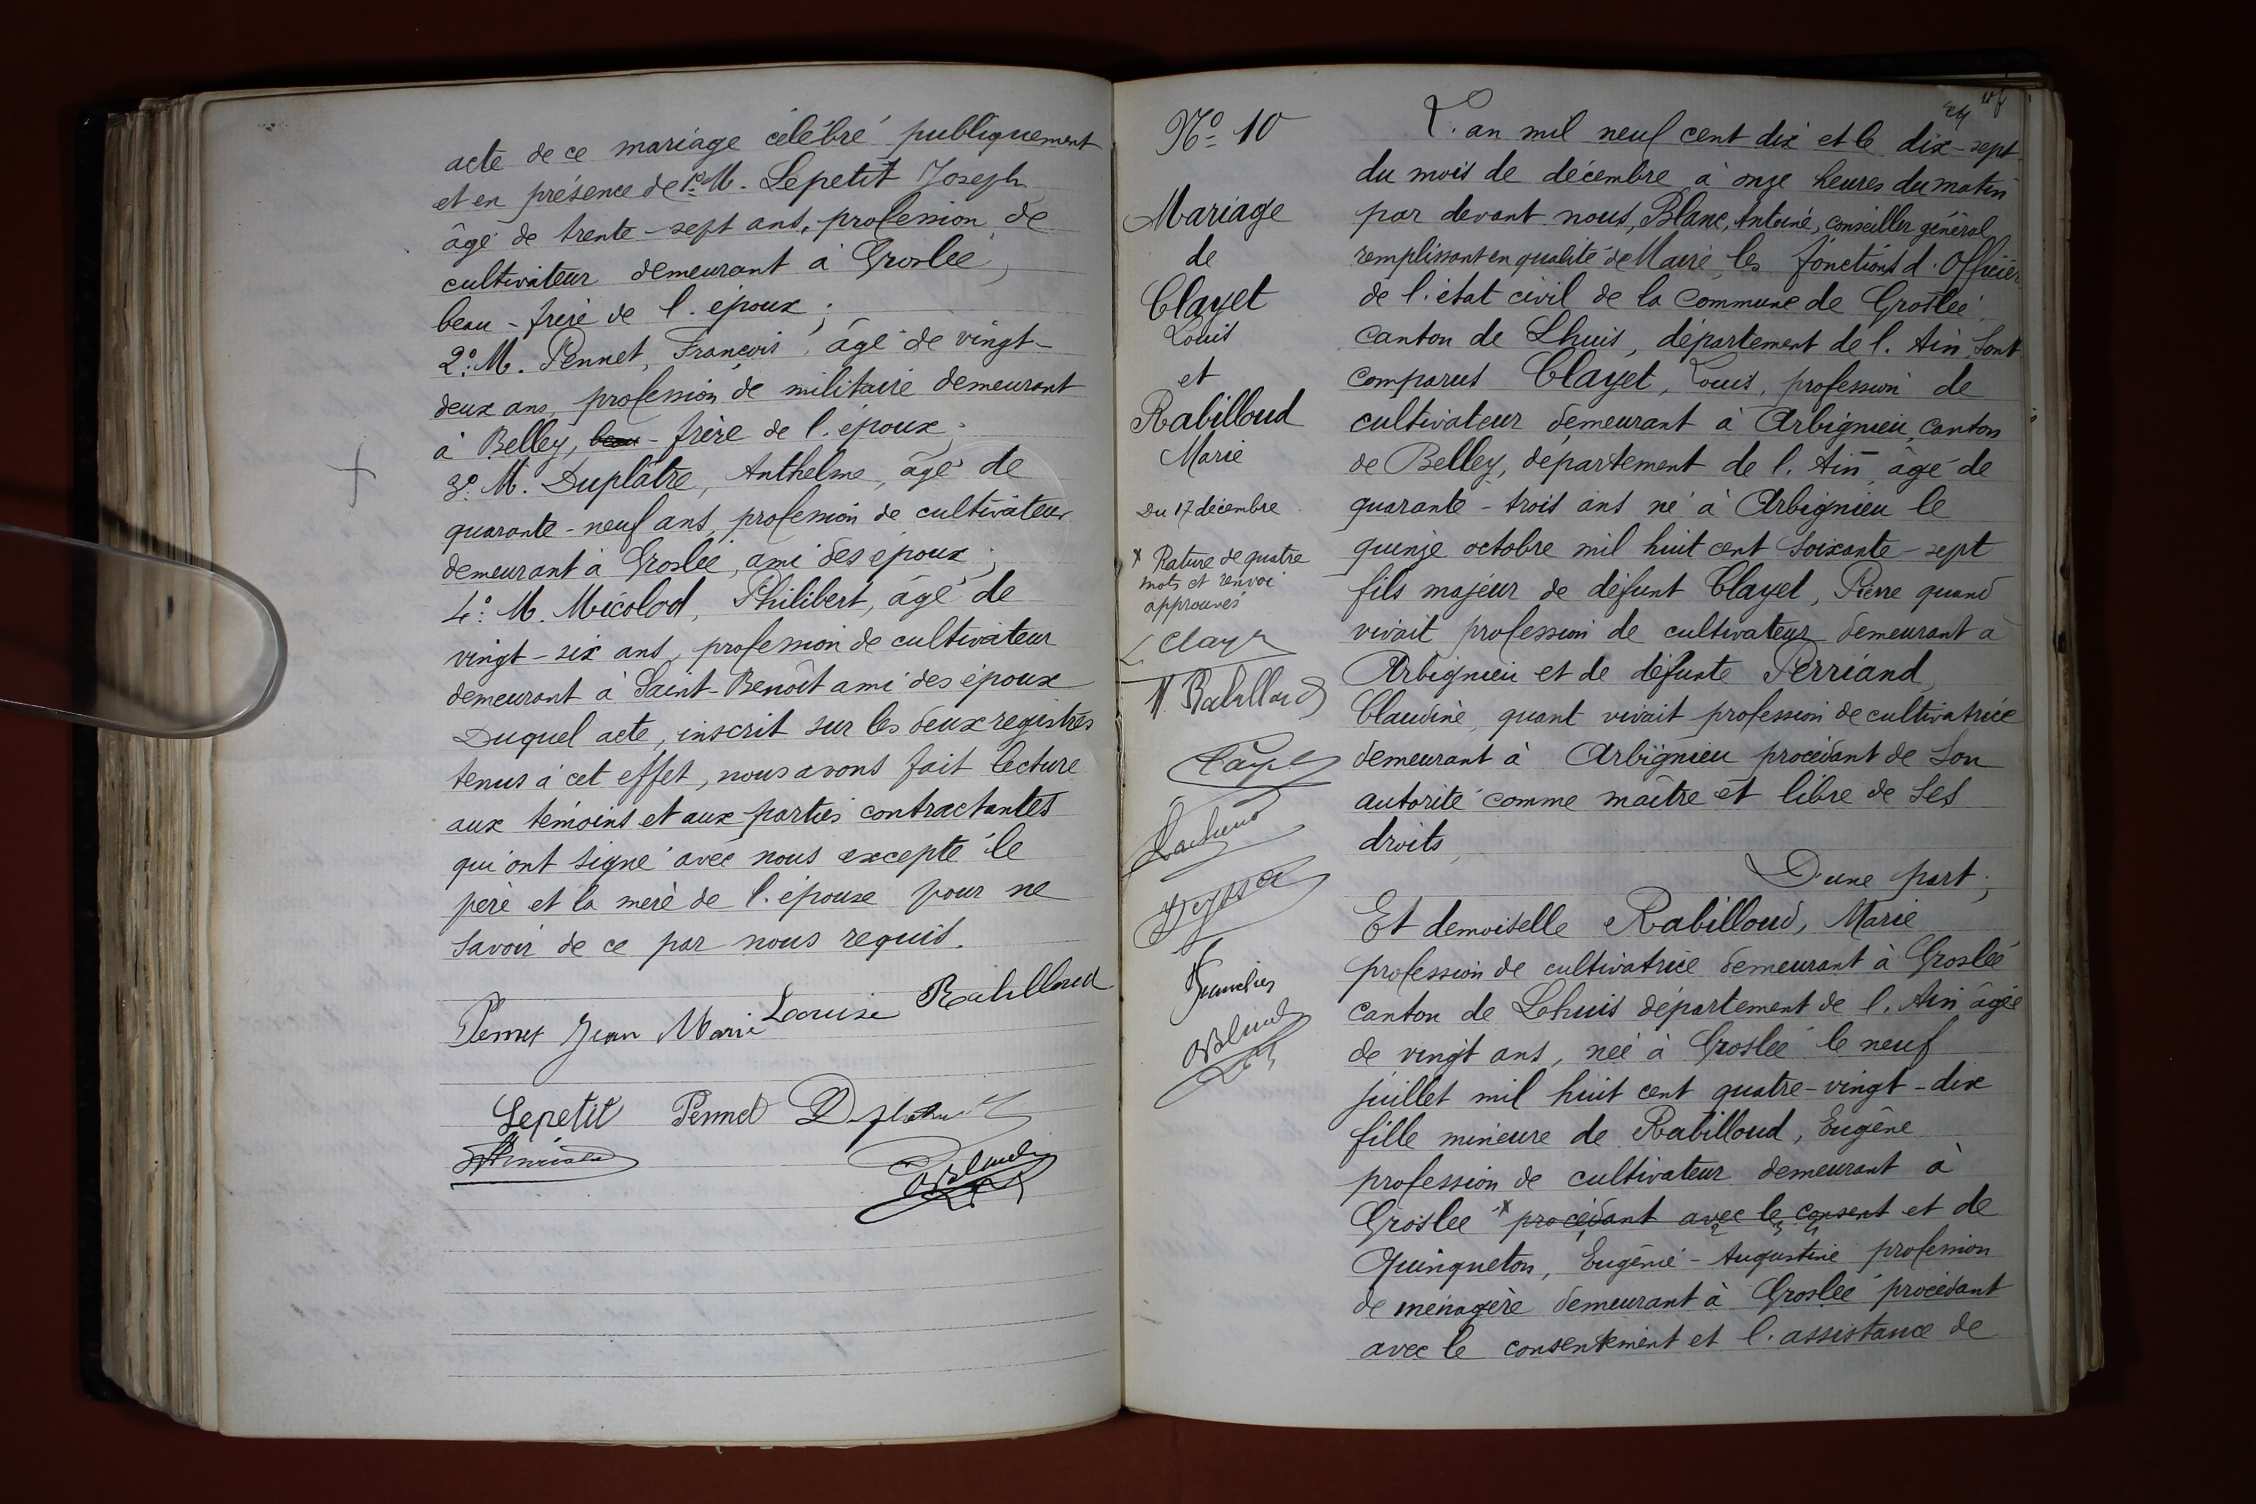 acte de ce mariage célébré publiquement
et en présence de 1º M. Lepetit Joseph
âgé de trente-sept ans, profession de
cultivateur demeurant à Groslée,
beau-frère de l'époux;
2º M. Pennet, François, âgé de vingt-
deux ans, profession de militaire demeurant
à Belley, beau-frère de l'époux;
3º M. Duplâtre, Anthelme, âgé de
quarante-neuf ans, profession de cultivateur
demeurant à Groslée, ami des époux;
4º M. Micolod, Philibert, âgé de
vingt-six ans, profession de cultivateur
demeurant à Saint-Benoît ami des époux
Duquel acte, inscrit sur les deux registres
tenus à cet effet, nous avons fait lecture
aux témoins et aux parties contractantes
qui ont signé avec nous excepté le
père et la mère de l'épouse pour ne
savoir de ce par nous requis.
Pennet Jean Marie Louise Rabilloud
Lepetit Pennet
Nº 10
Mariage
de
Clayet
Louis
et
Rabilloud
Marie
Du 17 décembre
x Rature de quatre
mots et renvoi
approuvés
L Clayet
M. Rabilloud
24
L'an mil neuf cent dix et le dix-sept
du mois de décembre à onze heures du matin
par devant nous, Blanc, Antoine, conseiller général
remplissant en qualité de Maire, les fonctions d'Officier
de l'état civil de la Commune de Groslée,
canton de Lhuis, département de l'Ain Sont
comparus Clayet, Louis, profession de
cultivateur demeurant à Arbignieu, canton
de Belley, département de l'Ain âgé de
quarante-trois ans né à Arbignieu le
quinze octobre mil huit cent soixante-sept
fils majeur de défunt Clayet, Pierre quand
vivait profession de cultivateur demeurant à
Arbignieu et de défunte Perriand
Claudine, quant vivait profession de cultivatrice
demeurant à Arbignieu procédant de son
autorité comme maître et libre de ses
droits,
D'une part;
Et demoiselle Rabilloud, Marie
profession de cultivatrice demeurant à Groslée
canton de Lhuis département de l'Ain âgée
de vingt ans, née à Groslée le neuf
juillet mil huit cent quatre-vingt-dix
fille mineure de Rabilloud, Eugène
profession de cultivateur demeurant à
Groslée x procédant avec le consent et de
Quinqueton, Eugénie-Augustine profession
de ménagère demeurant à Groslée procédant
avec le consentement et l'assistance de